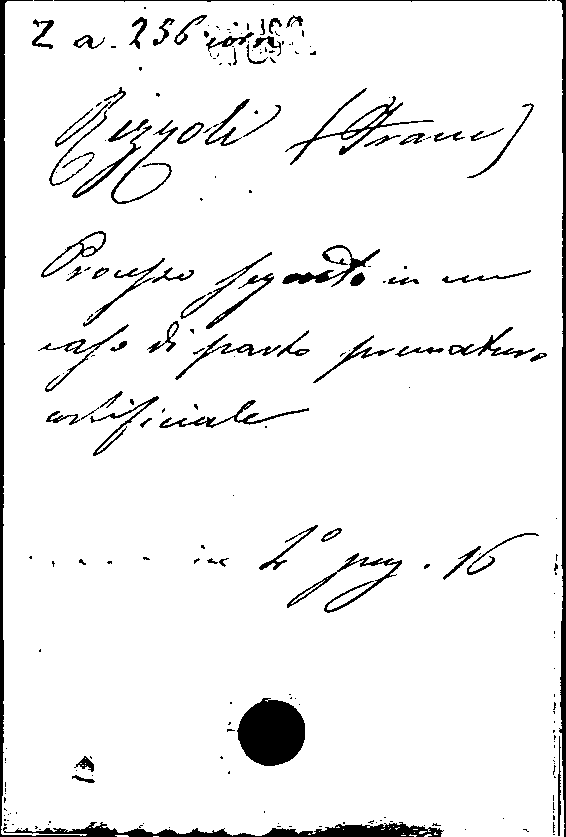 Z a. 256
Rizzoli (Franc)
Processo seguito in un
caso di parto prematuro
artificiale
. . . . . in 4° pag. 16